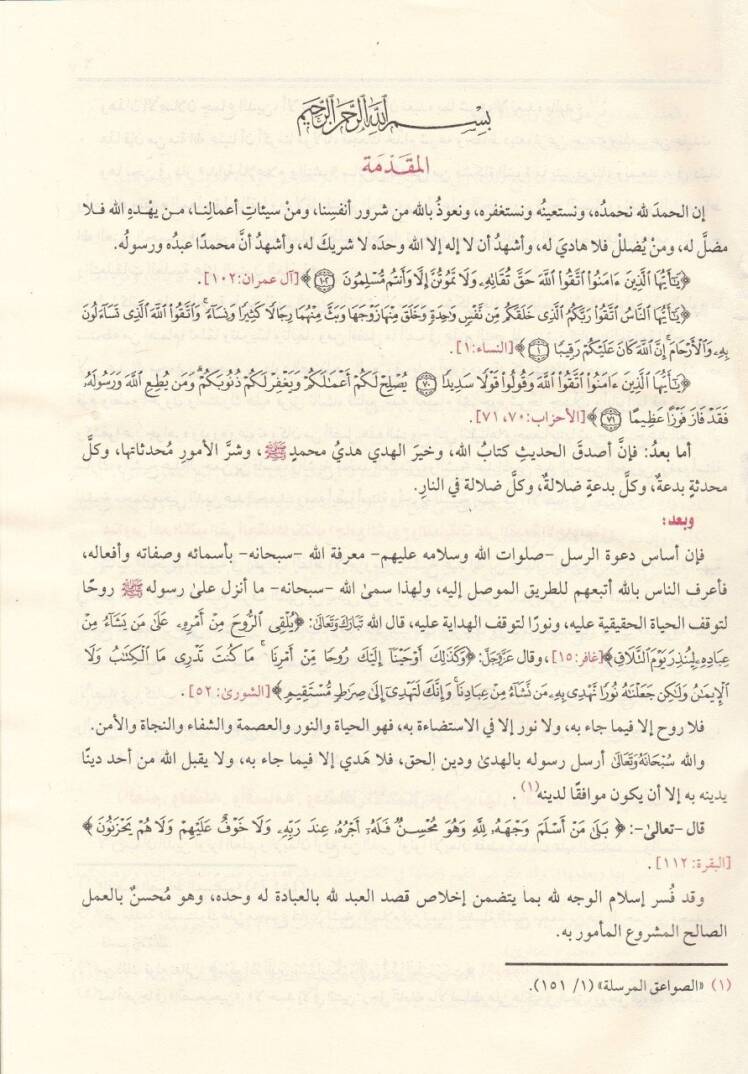 بِسْمِ اللَّهِ الرَّحْمَٰنِ الرَّحِيمِ
المقَدّمَة
إن الحمدَ لله نحمدُه، ونستعينُه ونستغفره، ونعوذُ بالله من شرور أنفسِنا، ومنْ سيئاتِ أعمالِنا، مـن يهْدِه الله فلا
مضلَّ له، ومنْ يُضللْ فلا هاديَ له، وأشهدُ أن لا إله إلا الله وحدَه لا شريكَ له، وأشهدُ أنَّ محمدًا عبدُه ورسولُه.
﴿يَٰٓأَيُّهَا ٱلَّذِينَ ءَامَنُوا۟ ٱتَّقُوا۟ ٱللَّهَ حَقَّ تُقَاتِهِۦ وَلَا تَمُوتُنَّ إِلَّا وَأَنتُم مُّسْلِمُونَ ١٠٢﴾[آل عمران:١٠٢].
﴿يَٰٓأَيُّهَا ٱلنَّاسُ ٱتَّقُوا۟ رَبَّكُمُ ٱلَّذِى خَلَقَكُم مِّن نَّفْسٍ وَٰحِدَةٍ وَخَلَقَ مِنْهَا زَوْجَهَا وَبَثَّ مِنْهُمَا رِجَالًا كَثِيرًا وَنِسَآءً ۚ وَٱتَّقُوا۟ ٱللَّهَ ٱلَّذِى تَسَآءَلُونَ
بِهِۦ وَٱلْأَرْحَامَ ۚ إِنَّ ٱللَّهَ كَانَ عَلَيْكُمْ رَقِيبًا ١﴾[النساء:١].
﴿يَٰٓأَيُّهَا ٱلَّذِينَ ءَامَنُوا۟ ٱتَّقُوا۟ ٱللَّهَ وَقُولُوا۟ قَوْلًا سَدِيدًا ٧٠ يُصْلِحْ لَكُمْ أَعْمَٰلَكُمْ وَيَغْفِرْ لَكُمْ ذُنُوبَكُمْ ۗ وَمَن يُطِعِ ٱللَّهَ وَرَسُولَهُۥ
فَقَدْ فَازَ فَوْزًا عَظِيمًا ٧١﴾[الأحزاب:٧٠، ٧١].
أما بعدُ: فإنَّ أصدقَ الحديثِ كتابُ الله، وخيرَ الهدي هديُ محمدٍ ﷺ، وشرَّ الأمورِ مُحدثاتها، وكلَّ
محدثةٍ بدعةٌ، وكلَّ بدعةٍ ضلالةٌ، وكلَّ ضلالة في النارِ.
وبعد:
فإن أساس دعوة الرسل –صلوات الله وسلامه عليهم– معرفة الله –سبحانه– بأسمائه وصفاته وأفعاله،
فأعرف الناس بالله أتبعهم للطريق الموصل إليه، ولهذا سمىٰ الله –سبحانه– ما أنزل علىٰ رسوله ﷺ روحًا
لتوقف الحياة الحقيقية عليه، ونورًا لتوقف الهداية عليه، قال الله تَبَارَكَ وَتَعَالَىٰ: ﴿يُلْقِى ٱلرُّوحَ مِنْ أَمْرِهِۦ عَلَىٰ مَن يَشَآءُ مِنْ
عِبَادِهِۦ لِيُنذِرَ يَوْمَ ٱلتَّلَاقِ﴾[غافر:١٥]، وقال عَزَّوَجَلَّ: ﴿وَكَذَٰلِكَ أَوْحَيْنَآ إِلَيْكَ رُوحًا مِّنْ أَمْرِنَا ۚ مَا كُنتَ تَدْرِى مَا ٱلْكِتَٰبُ وَلَا
ٱلْإِيمَٰنُ وَلَٰكِن جَعَلْنَٰهُ نُورًا نَّهْدِى بِهِۦ مَن نَّشَآءُ مِنْ عِبَادِنَا ۚ وَإِنَّكَ لَتَهْدِىٓ إِلَىٰ صِرَٰطٍ مُّسْتَقِيمٍ﴾[الشورىٰ: ٥٢].
فلا روح إلا فيما جاء به، ولا نور إلا في الاستضاءة به، فهو الحياة والنور والعصمة والشفاء والنجاة والأمن.
والله سُبْحَانَهُ وَتَعَالَىٰ أرسل رسوله بالهدىٰ ودين الحق، فلا هَدي إلا فيما جاء به، ولا يقبل الله من أحد دينًا
يدينه به إلا أن يكون موافقًا لدينه(١).
قال –تعالىٰ–: ﴿ بَلَىٰ مَنْ أَسْلَمَ وَجْهَهُۥ لِلَّهِ وَهُوَ مُحْسِنٌ فَلَهُۥٓ أَجْرُهُۥ عِندَ رَبِّهِۦ وَلَا خَوْفٌ عَلَيْهِمْ وَلَا هُمْ يَحْزَنُونَ ﴾
[البقرة: ١١٢].
وقد فُسر إسلام الوجه لله بما يتضمن إخلاص قصد العبد لله بالعبادة له وحده، وهو مُحسنٌ بالعمل
الصالح المشروع المأمور به.
(١) «الصواعق المرسلة» (١/ ١٥١).